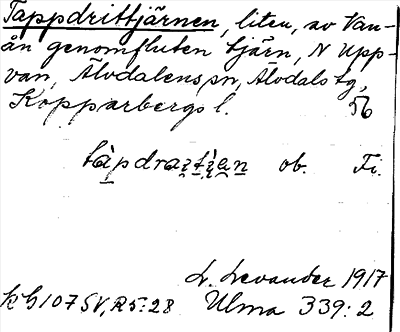 Tappdrittjärnen, liten, av Van-
ån genomfluten tjärn, N Upp-
van, Älvdalens sn, Älvdals tg,
Kopparbergs l. 56
ob. Fi.
L. Levander 1917
kh 107 SV, R5:28 Ulma 339:2